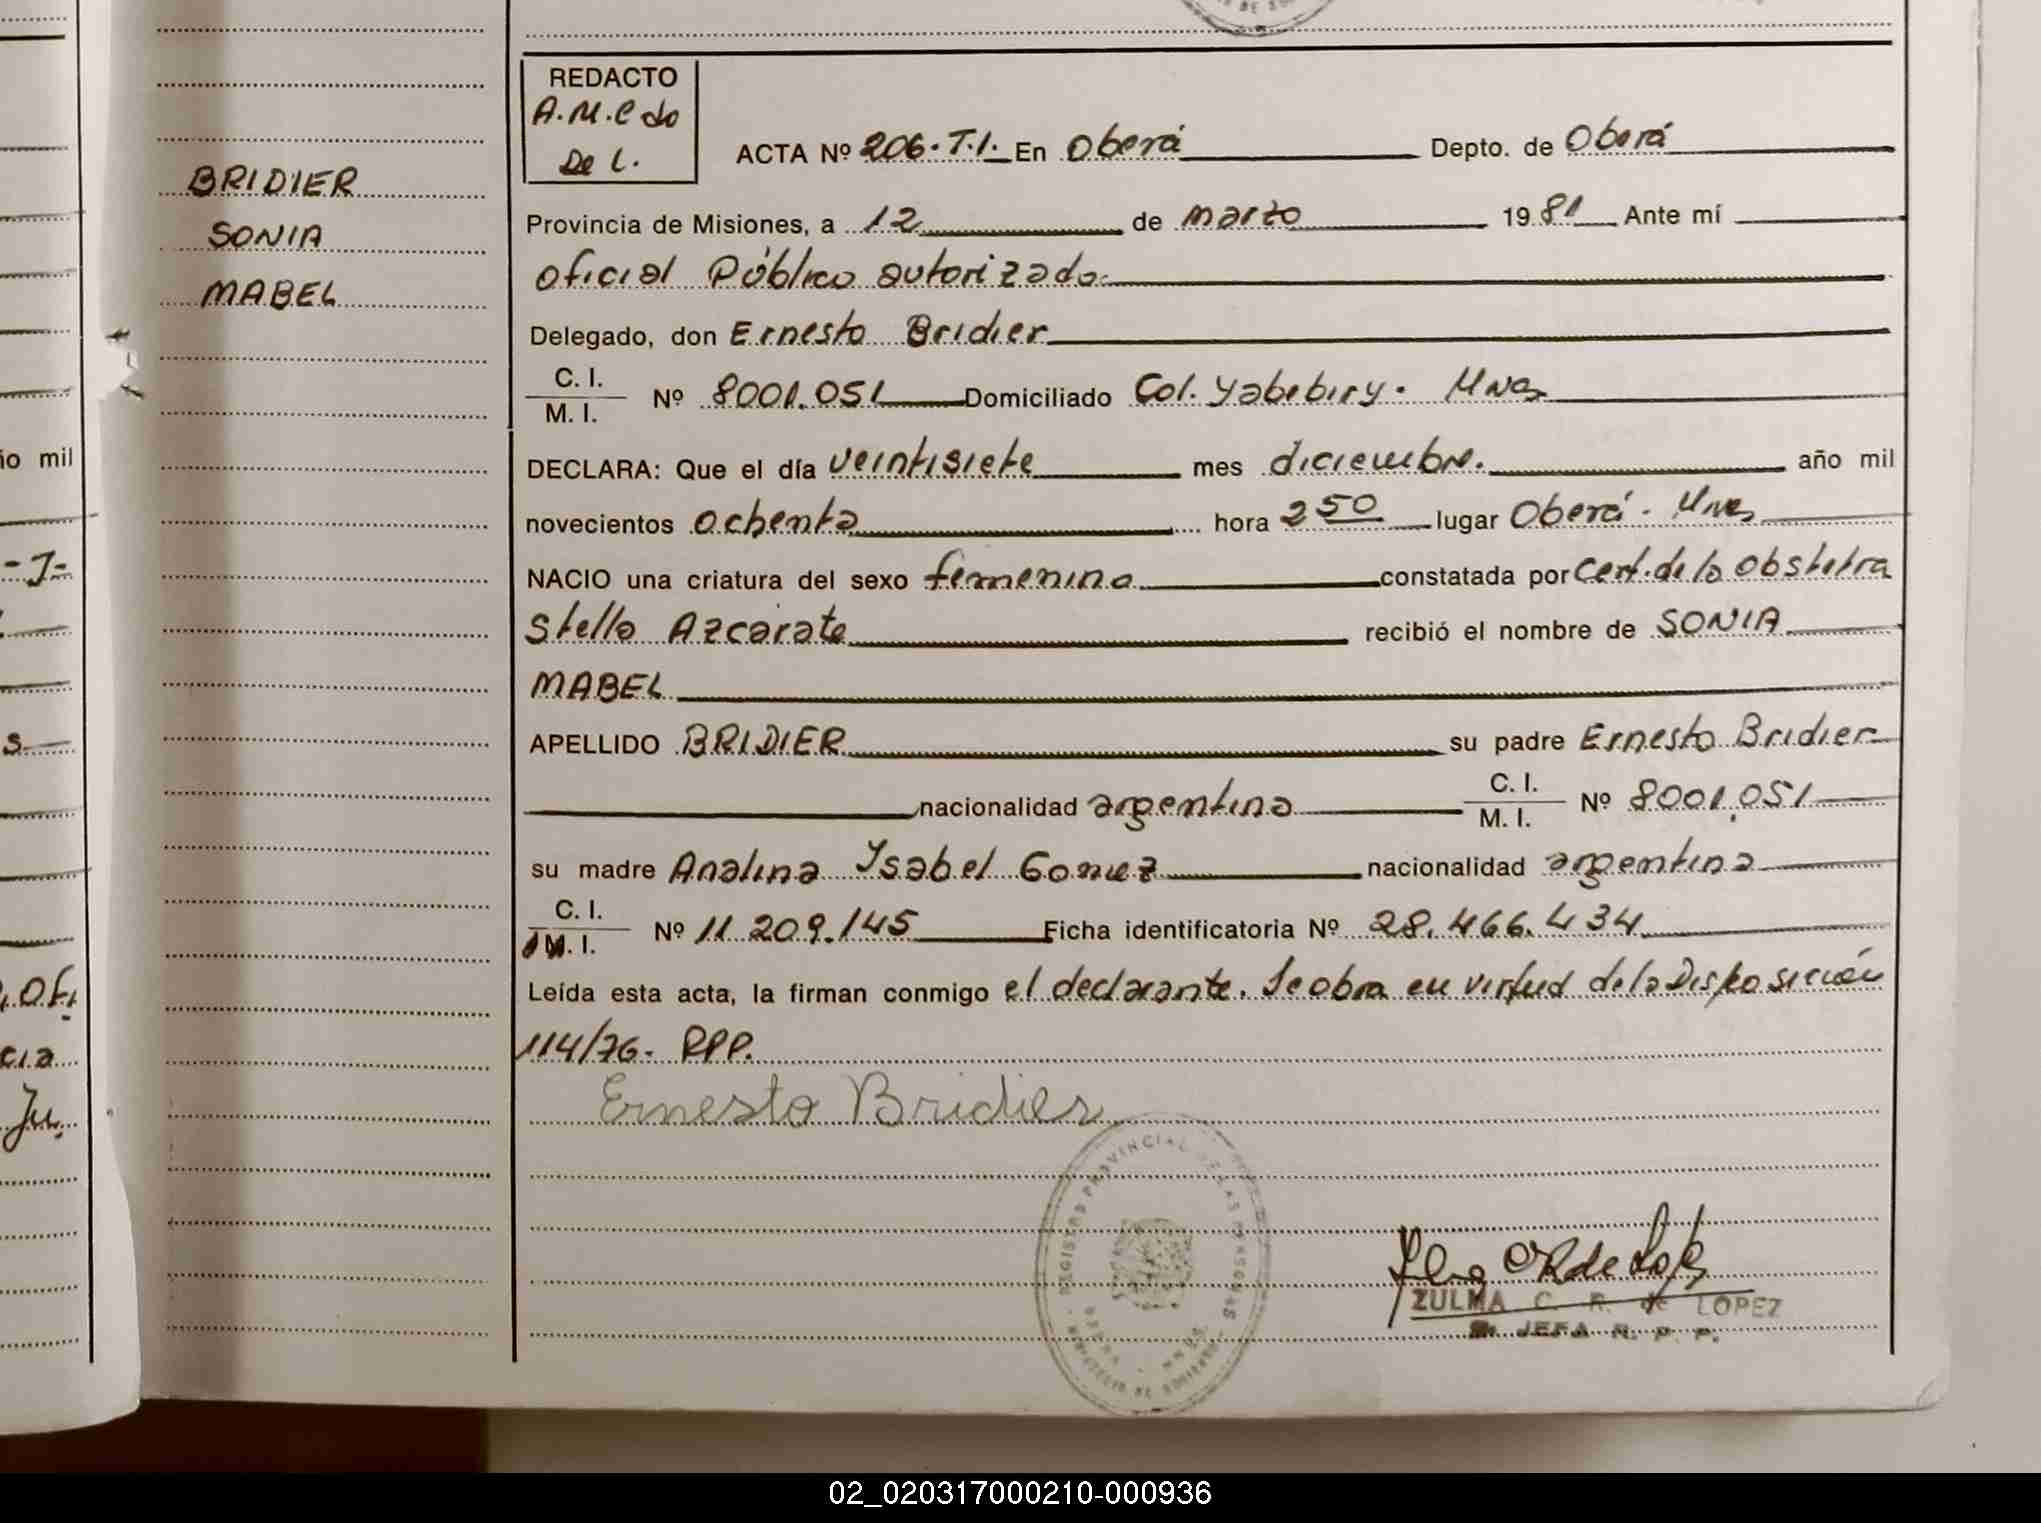 REDACTO
A.M.C do
De L.
ACTA Nº 206.T.I. En Oberá Depto. de Oberá
BRIDIER
SONIA
MABEL
Provincia de Misiones, a 12 de marzo 1981 Ante mí
oficial Público autorizado.
Delegado, don Ernesto Bridier
C. I.
M. I. Nº 8001.051 Domiciliado Col. Yabebiry. Mnes
DECLARA: Que el día veintisiete mes diciembre. año mil
novecientos ochenta hora 2 50 lugar Oberá - Mnes
NACIO una criatura del sexo femenino constatada por Cert. de la Obstetra
Stella Azcarate recibió el nombre de SONIA
MABEL
APELLIDO BRIDIER su padre Ernesto Bridier
nacionalidad argentina C. I.
M. I. Nº 8001.051
su madre Analina Ysabel Gomez nacionalidad argentina
C. I.
M. I. Nº 11.209.145 Ficha identificatoria Nº 28.466.434
Leída esta acta, la firman conmigo el declarante. Se obra en virtud de la Disposición
114/76. RPP.
Ernesto Bridier
REGISTRO PROVINCIAL DE LAS PERSONAS
ZULMA C. R. de LOPEZ
JEFA R. P. P.
ño mil
02_020317000210-000936